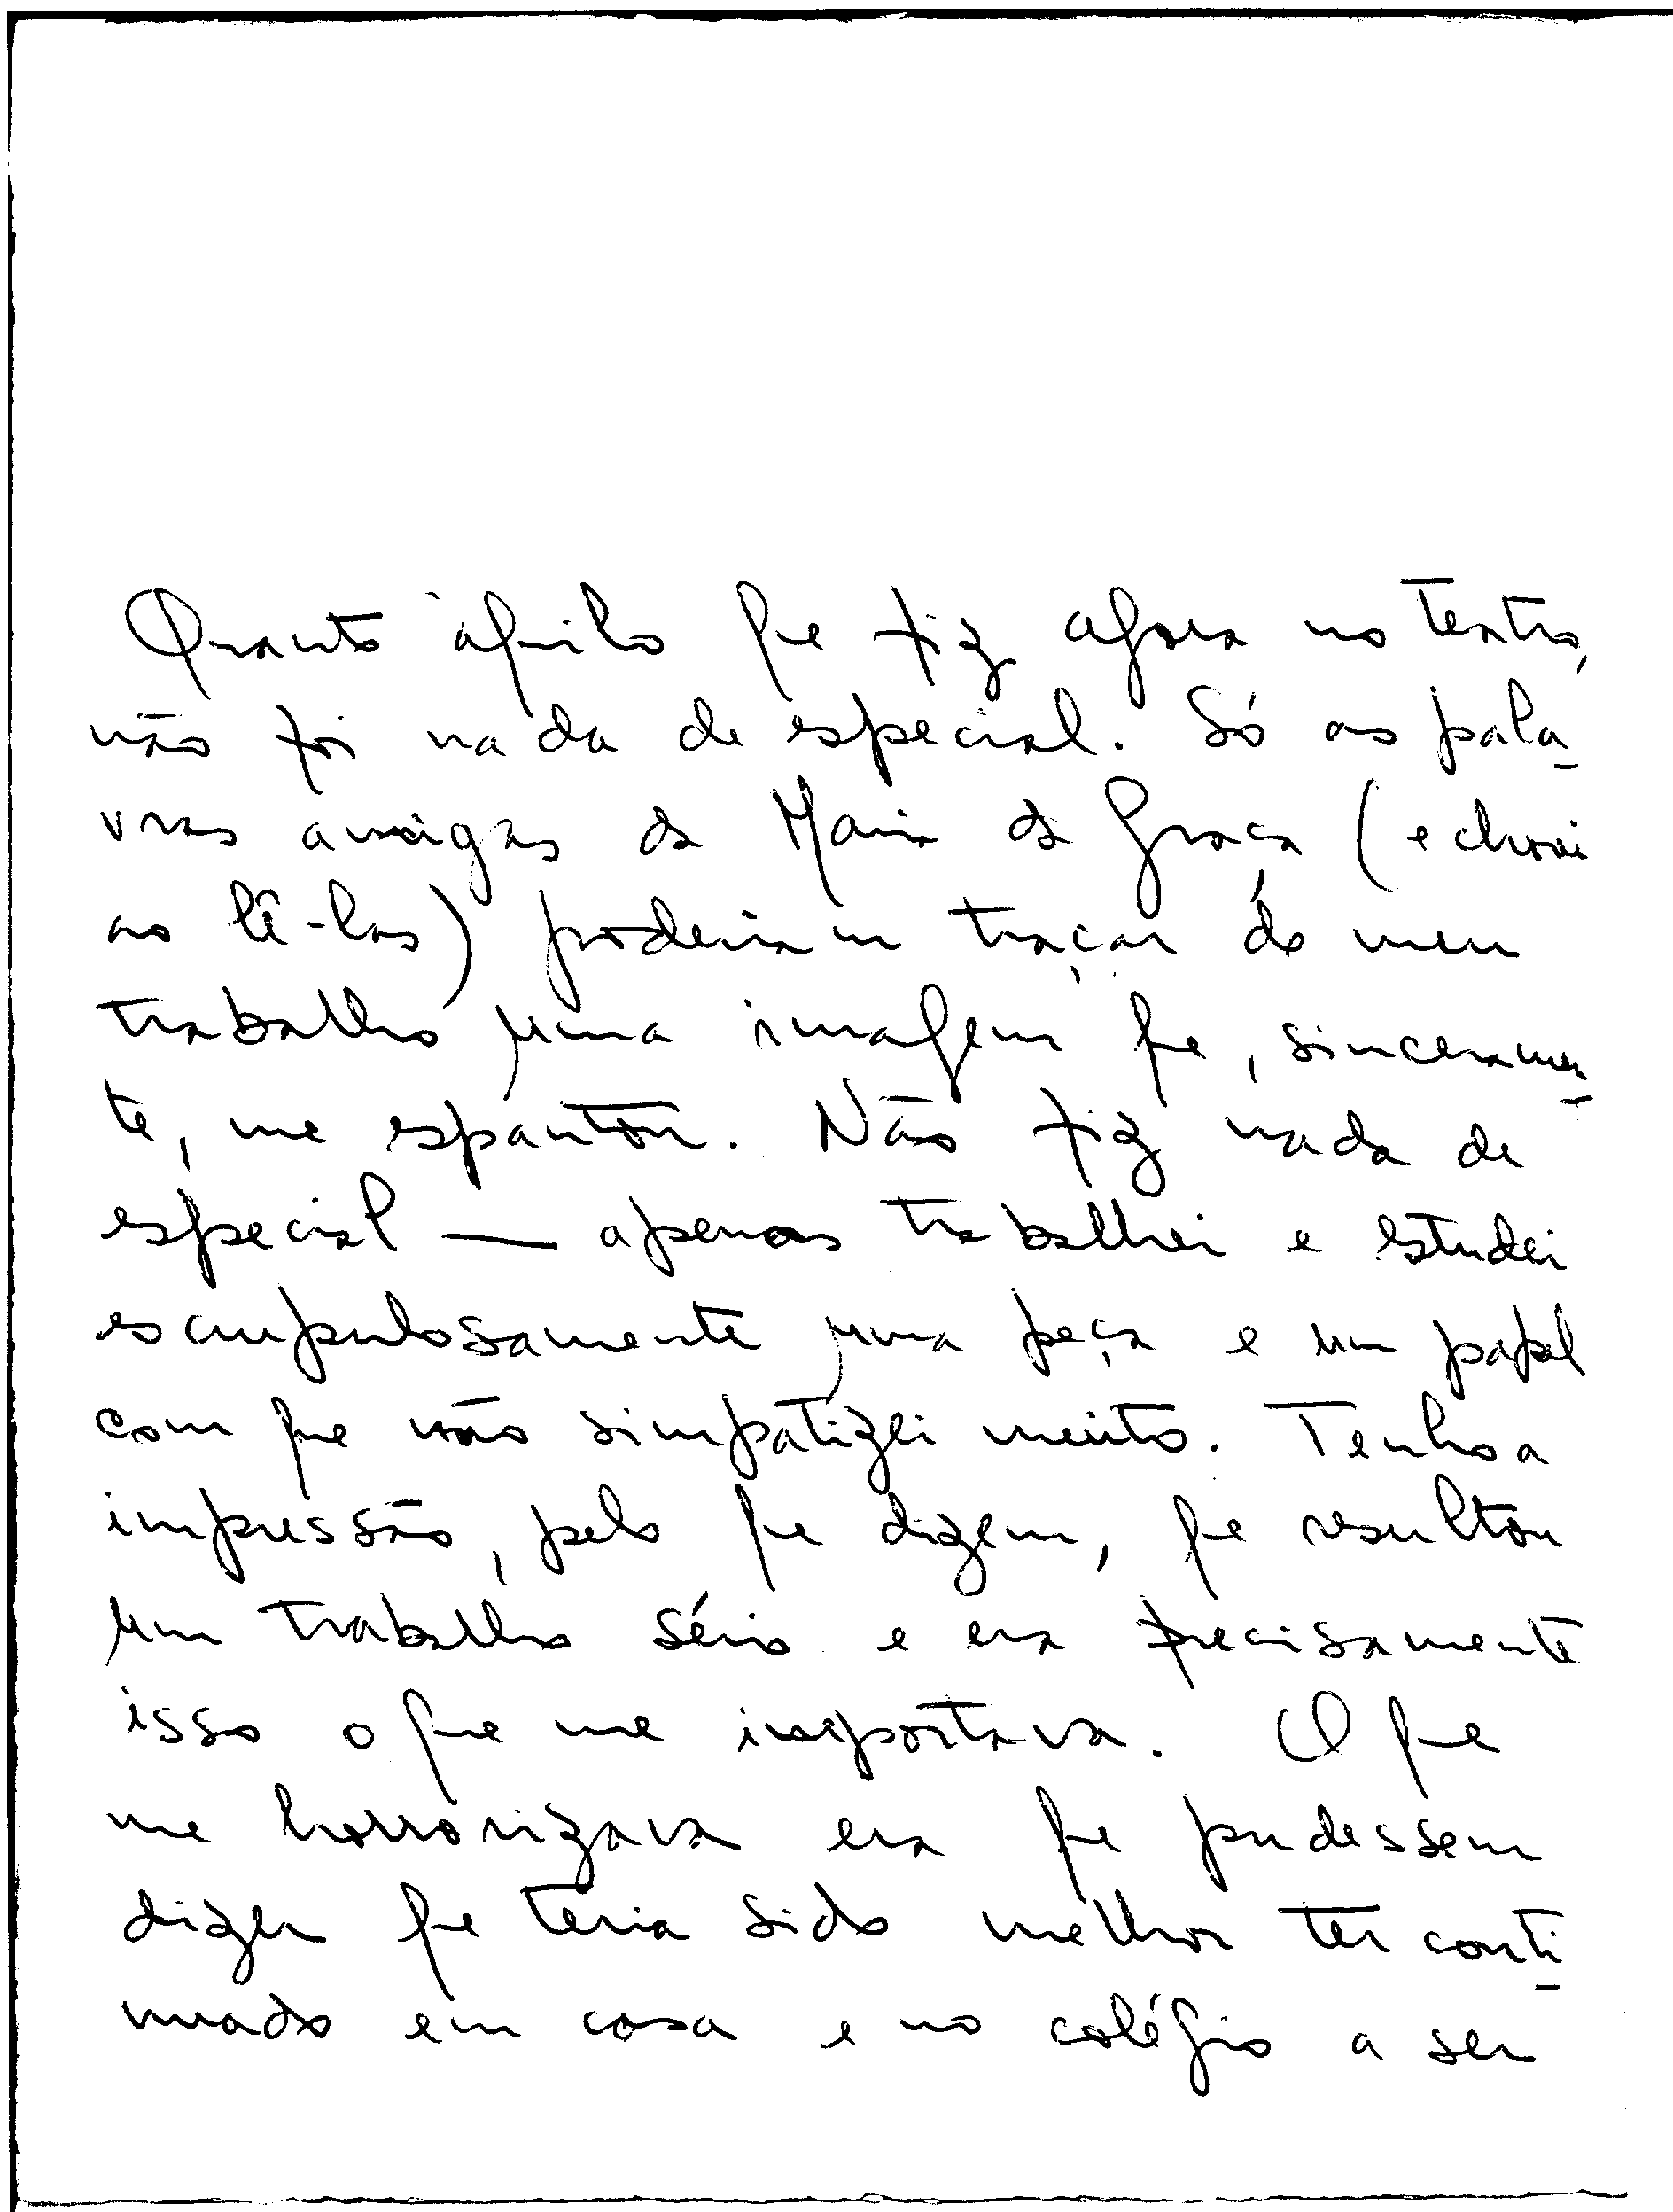 Quanto àquilo que fiz agora no teatro,
não foi nada de especial. Só as pala-
vras amigas da Maria da Graça (e chorei
ao lê-las) poderiam traçar do meu
trabalho uma imagem que, sinceramen-
te, me espantou. Não fiz nada de
especial — apenas trabalhei e estudei
escrupulosamente uma peça e um papel
com que não simpatizei muito. Tenho a
impressão, pelo que dizem, que resultou
um trabalho sério e era precisamente
isso o que me importava. O que
me horrorizava era que pudessem
dizer que teria sido melhor ter conti-
nuado em casa e no colégio a ser